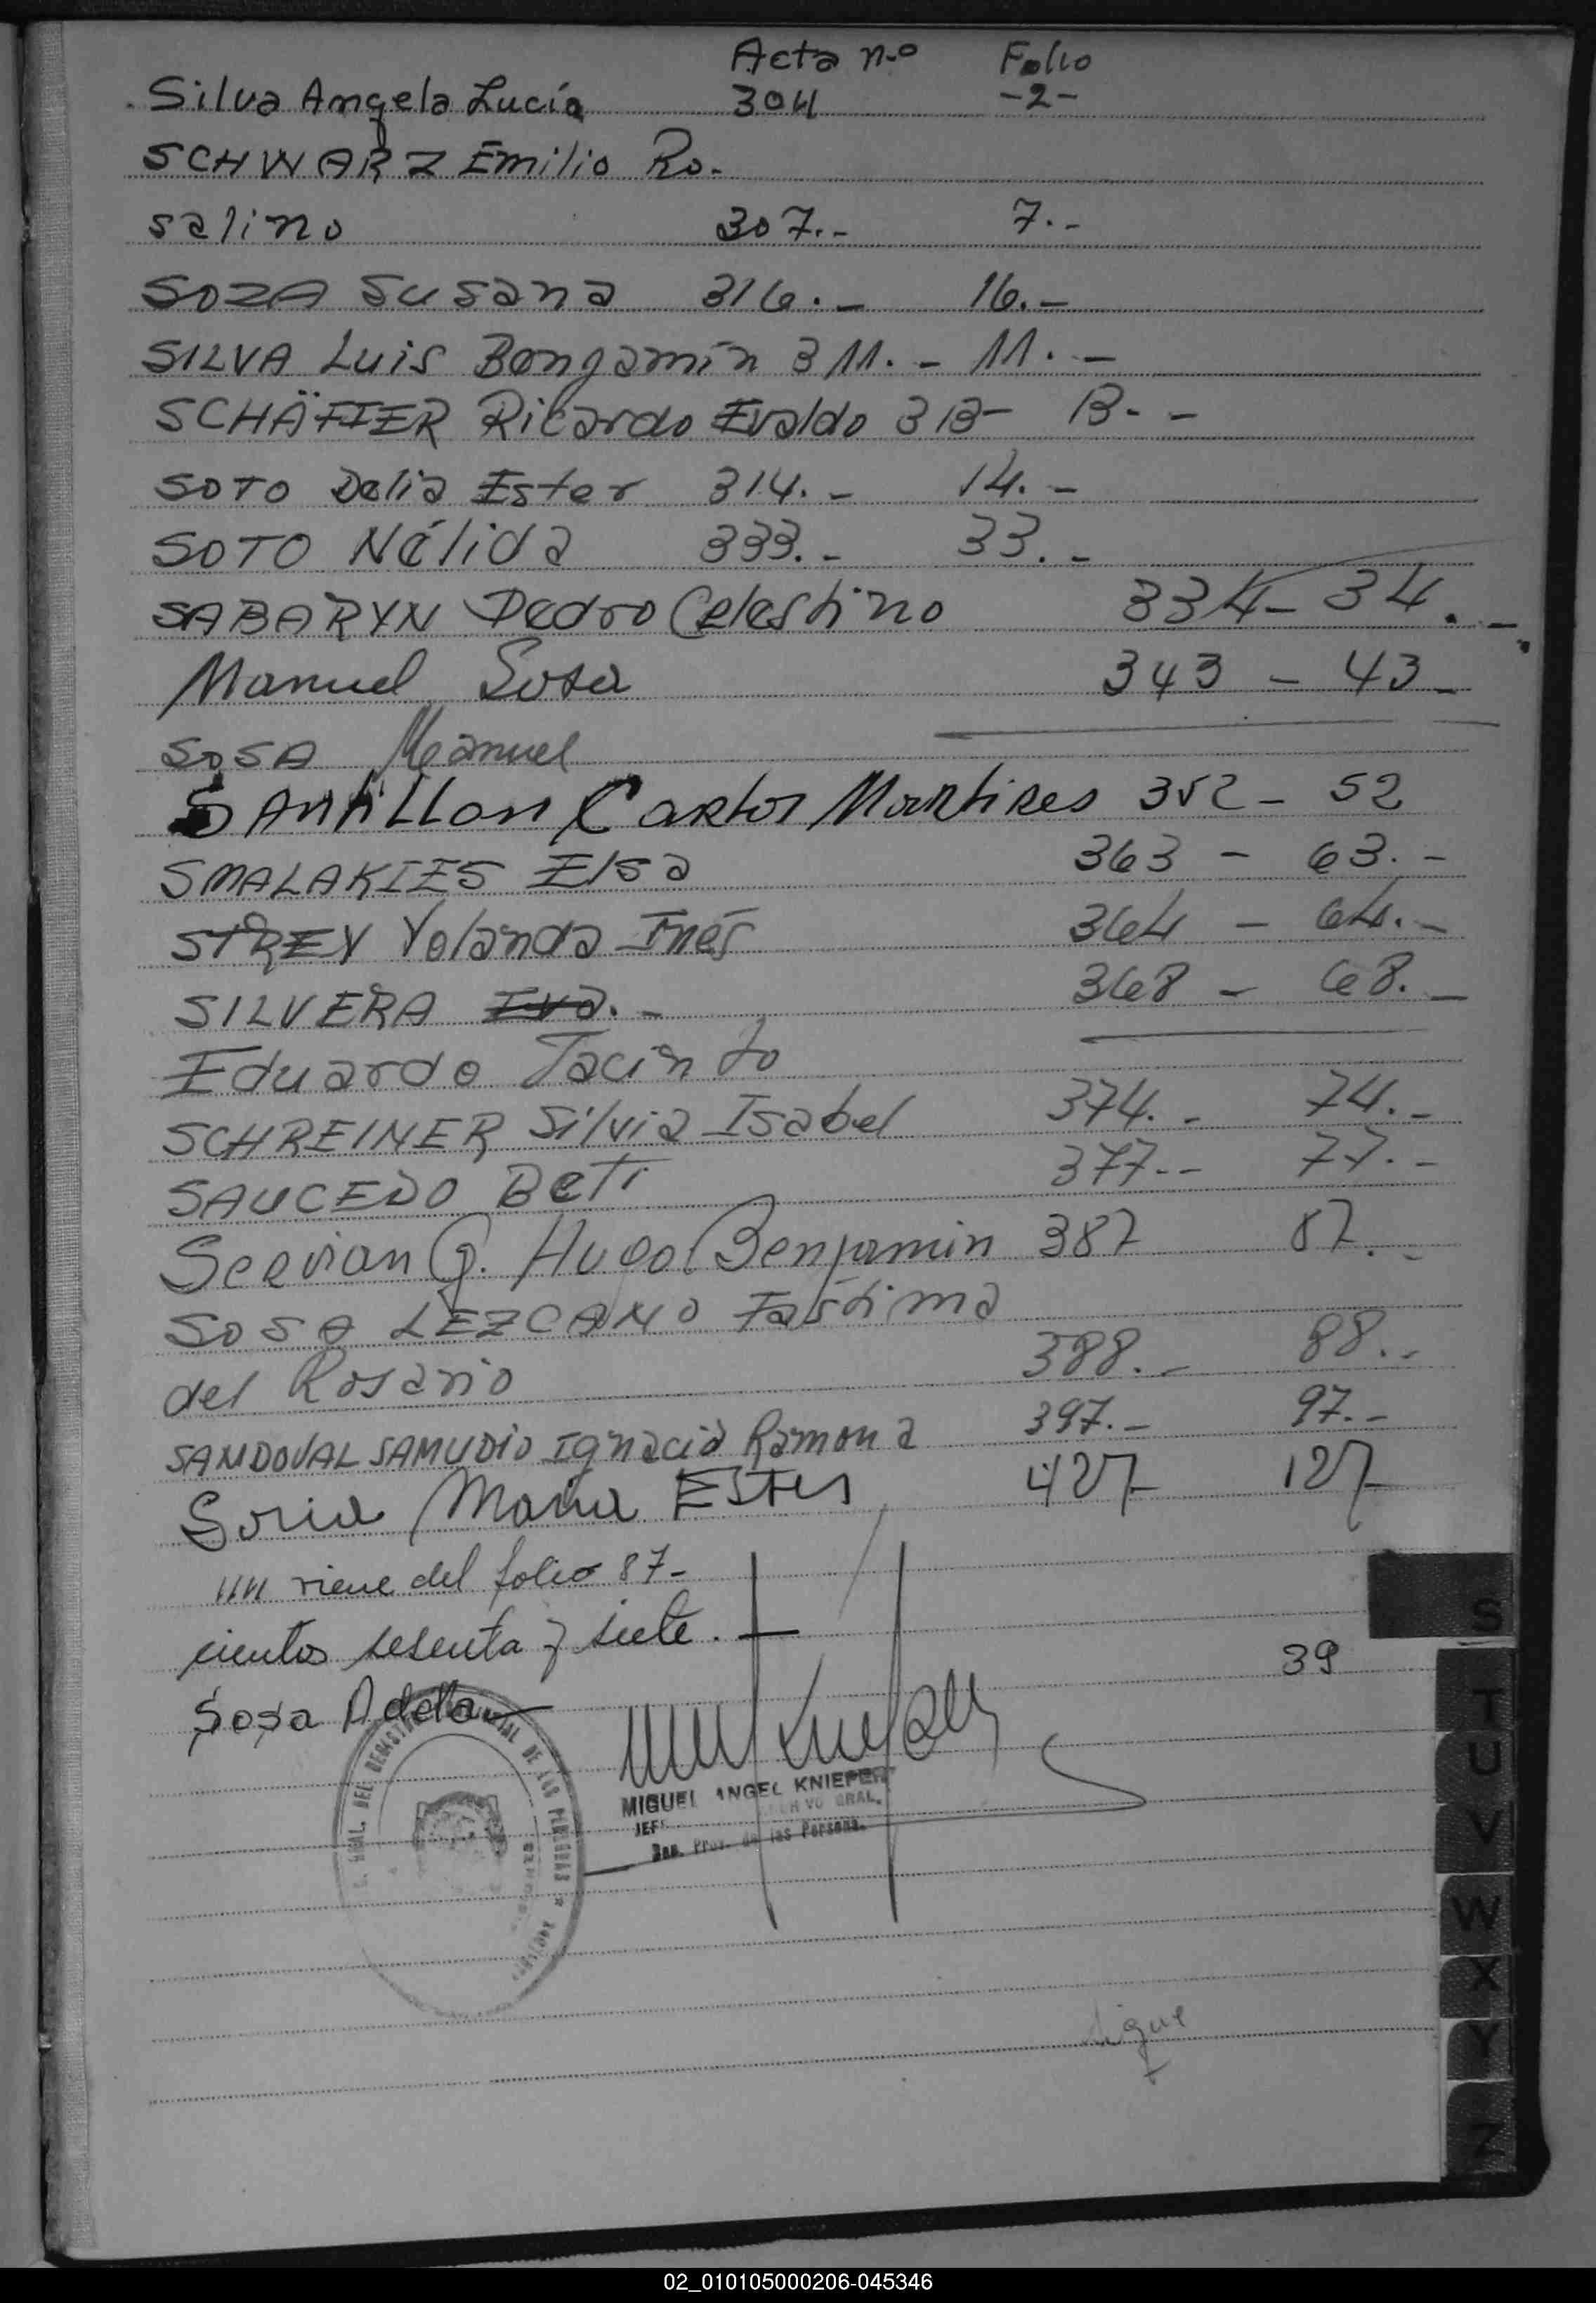 Acta n.o Folio
Silva Angela Lucía 304 -2-
SCHWARZ Emilio Ro-
salino 307.- 7.-
SOZA Susana 316.- 16.-
SILVA Luis Bengamín 311.- 11.-
SCHÄFFER Ricardo Evaldo 313- 13.-
SOTO Delia Ester 314.- 14.-
SOTO Nélida 333.- 33.-
SABARYN Pedro Celestino 334- 34.-
Manuel Sosa 343 - 43-
SOSA Manuel
SANtiLLan Carlos Martires 352 - 52
SMALAKIES Elsa 363 - 63.-
STREY Yolanda Inés 364 - 64.-
SILVERA Eva.- 368 - 68.-
Eduardo Jacinto
SCHREINER Silvia Isabel 374.- 74.-
SAUCEDO Beti 377.- 77.-
Servian G. Hugo Benjamin 387 87.-
SOSA LEZCANO Fastima
del Rosario 388.- 88.-
SANDOVAL SAMUDIO Ignacia Ramona 397.- 97.-
Soria Maria Ester 427- 127-
viene del folio 87-
cientos sesenta y siete.-
Sosa Adela 39
MIGUEL ANGEL KNIEPERT
JEFE
Prov. de las Personas
sigue
S
T
U
V
W
X
Y
Z
02_010105000206-045346